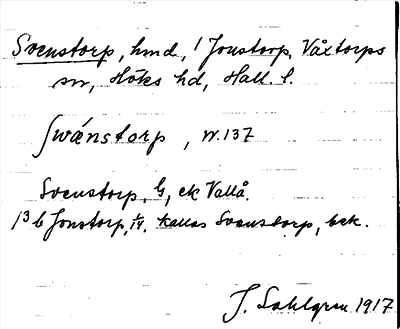 Svenstorp, hmd, ! Jonstorp, Våxtorps
sn, Höks hd, Hall. l.
Swänstorp, W. 137
Svenstorp, ek Vallå.
13 b Jonstorp, kallas Svenstorp, bek.
J. Sahlgren 1917